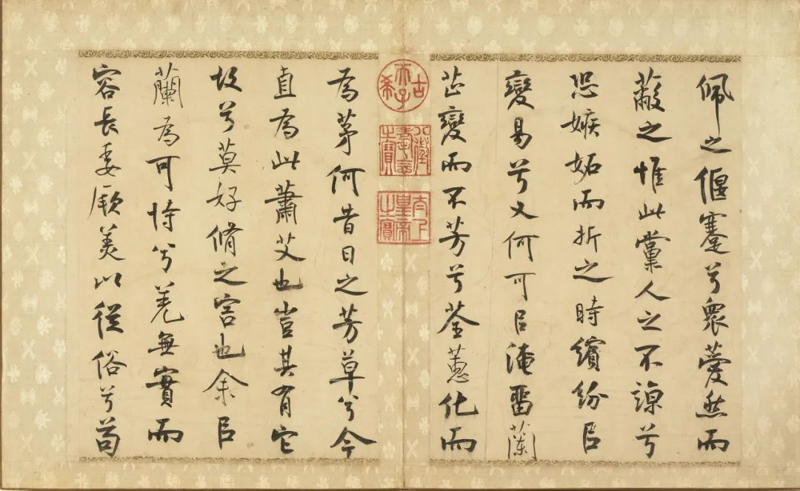 佩之偃蹇兮眾薆然而
蔽之惟此黨人之不諒兮
恐嫉妬而折之時繽紛㠯
變易兮又何可㠯淹留蘭
芷變而不芳兮荃蕙化而
古希天子
八徵耄念之寶
太上皇帝之寶
為茅何昔日之芳草兮今
直為此蕭艾也豈其有它
故兮莫好脩之害也余㠯
蘭為可恃兮羌無實而
容長委厥美以從俗兮苟